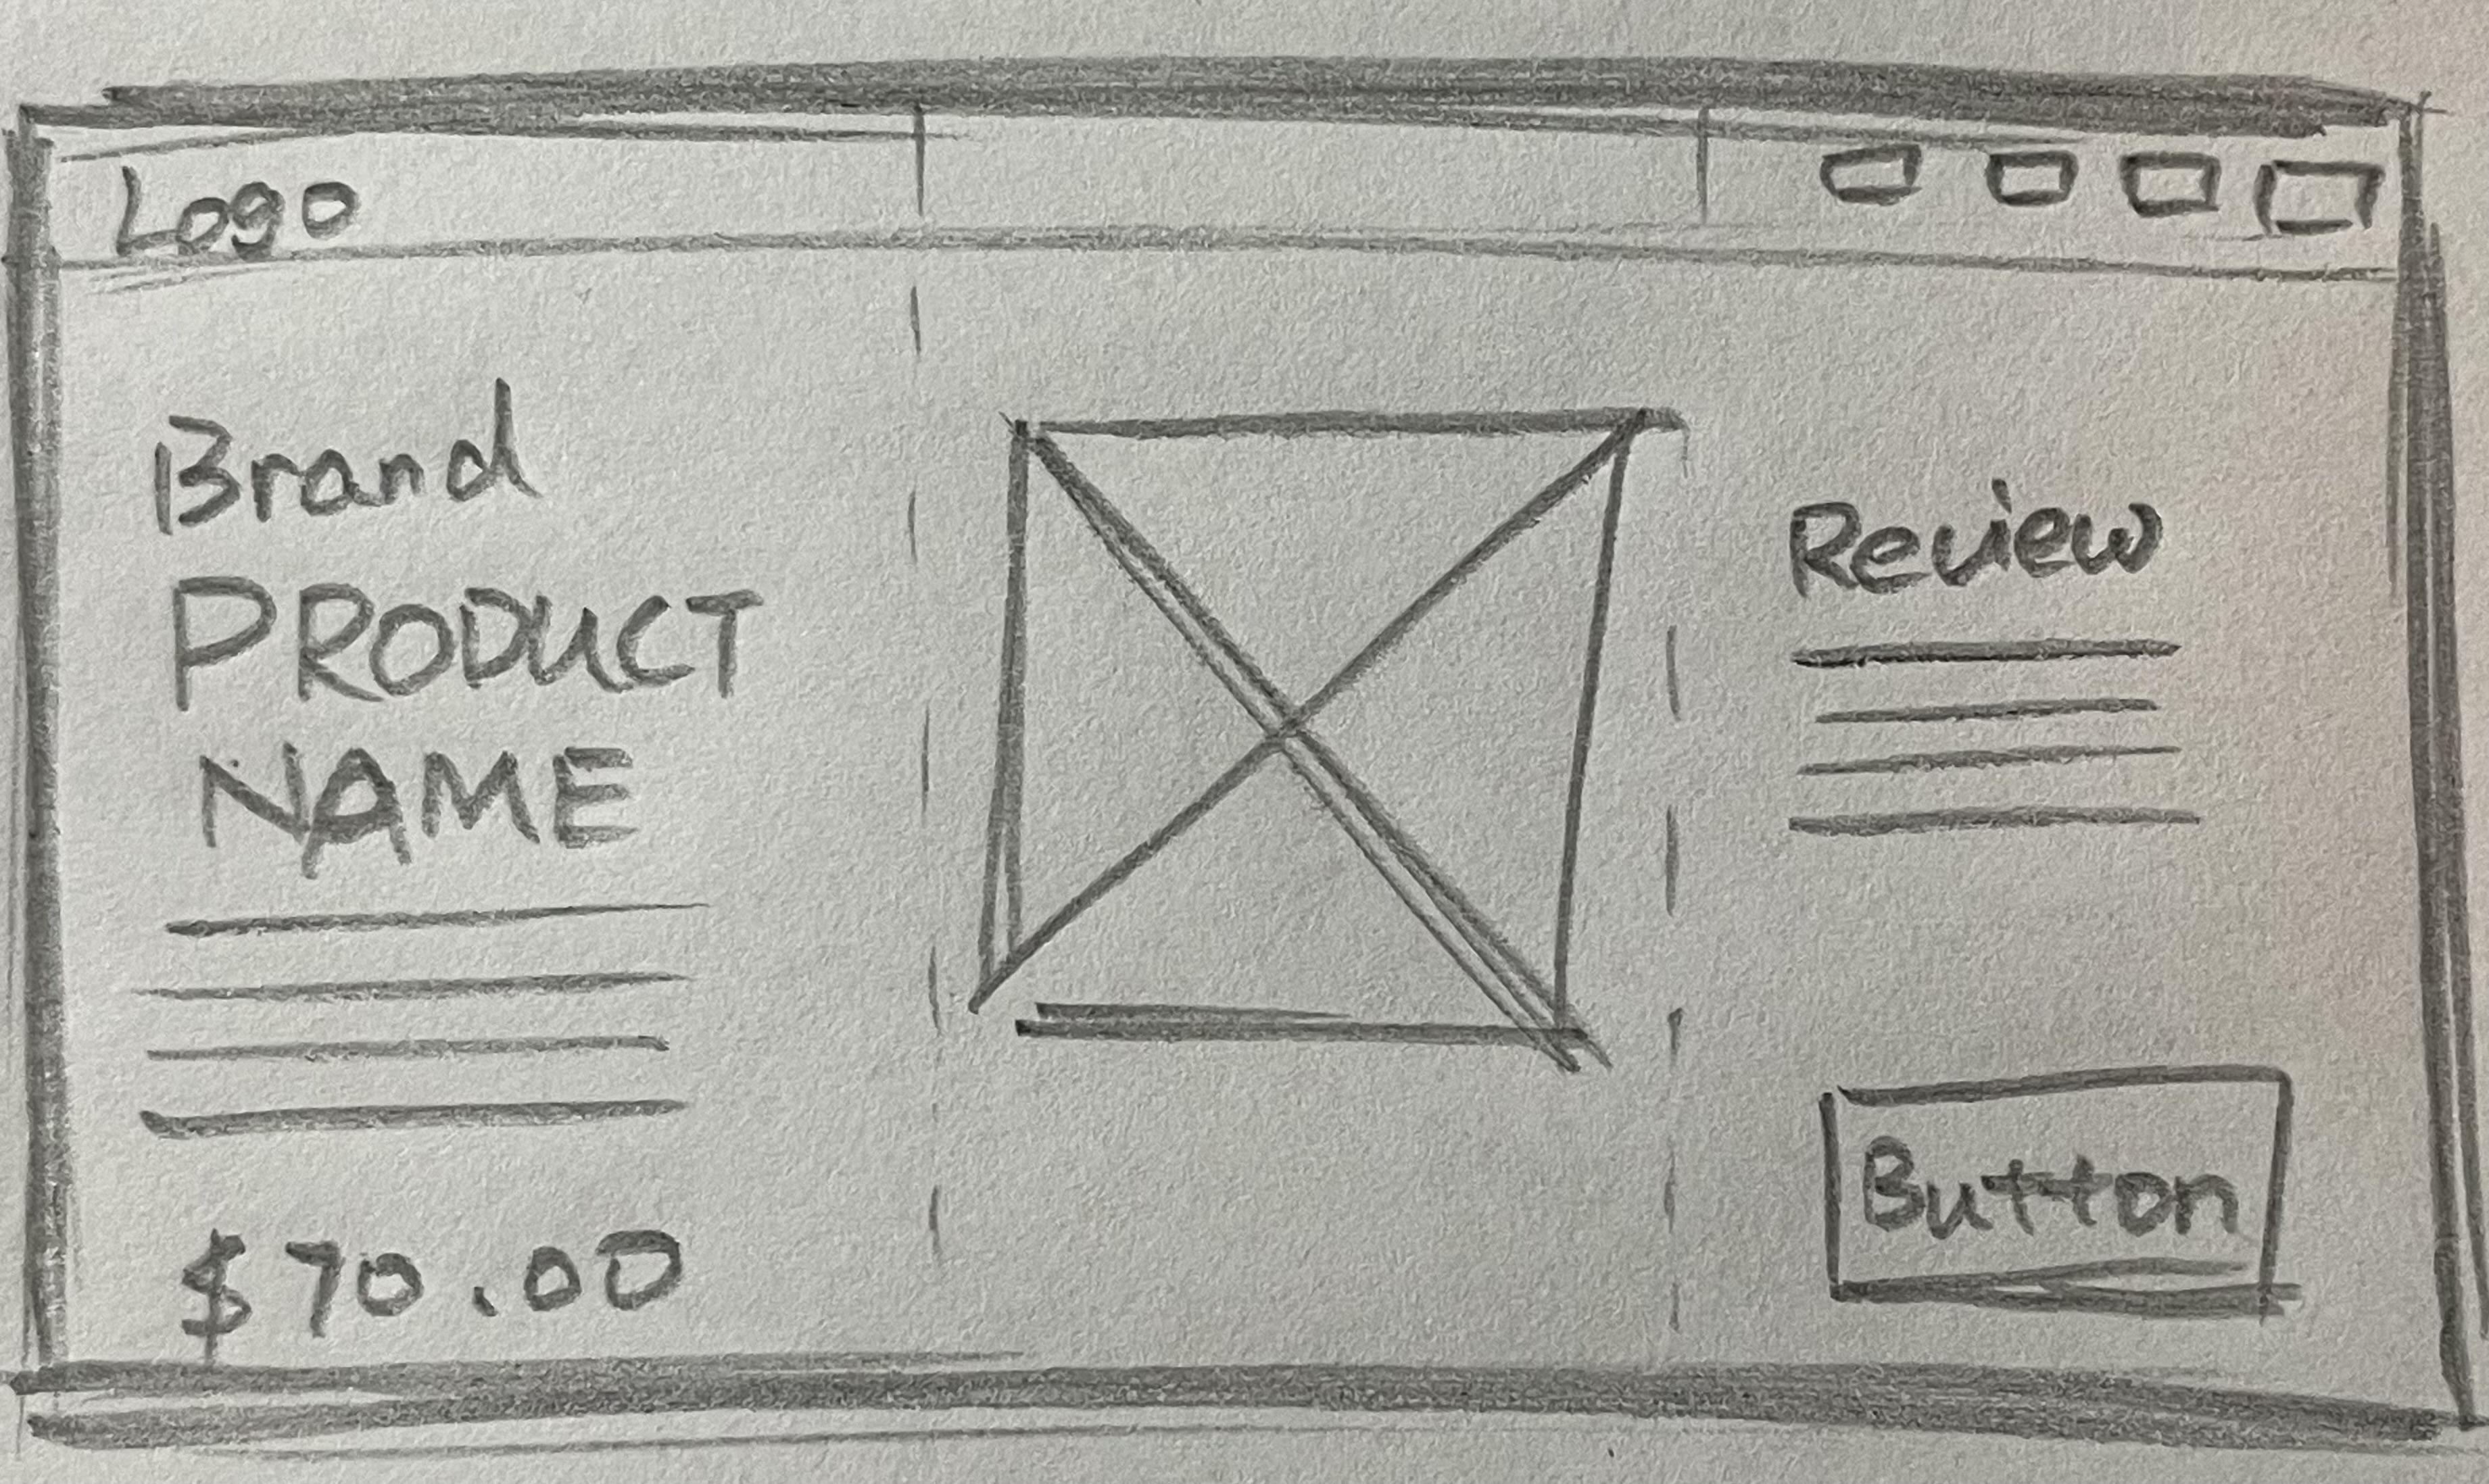 Logo
Brand
PRODUCT
NAME
$70.00
Review
Button